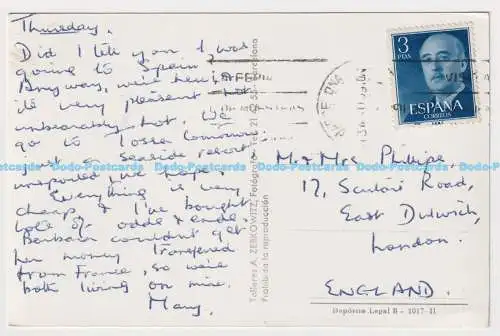 Thursday.
Did I tell you I was
going to Spain
Anyway, we're here, &
it's very pleasant not
unbearably hot. We
go to Tossa tomorrow
just a seaside resort
unspoiled we hope.
Everything is very
cheap & I've bought
lots of odds & ends.
Barbara couldn't get
her money transfered
from France, so we're
both living on mine.
Mary.
Talleres A. ZERKOWITZ, Fotógrafo - Barcelona
Prohibida la reproducción
3
PTAS
ESPAÑA
CORREOS
Mr & Mrs Phillips.
17, Road,
East Dulwich,
London.
ENGLAND.
Depósito Legal B - 1017-II
Postcards Dado-Postcards Dado-Postcards Dado-Postcards